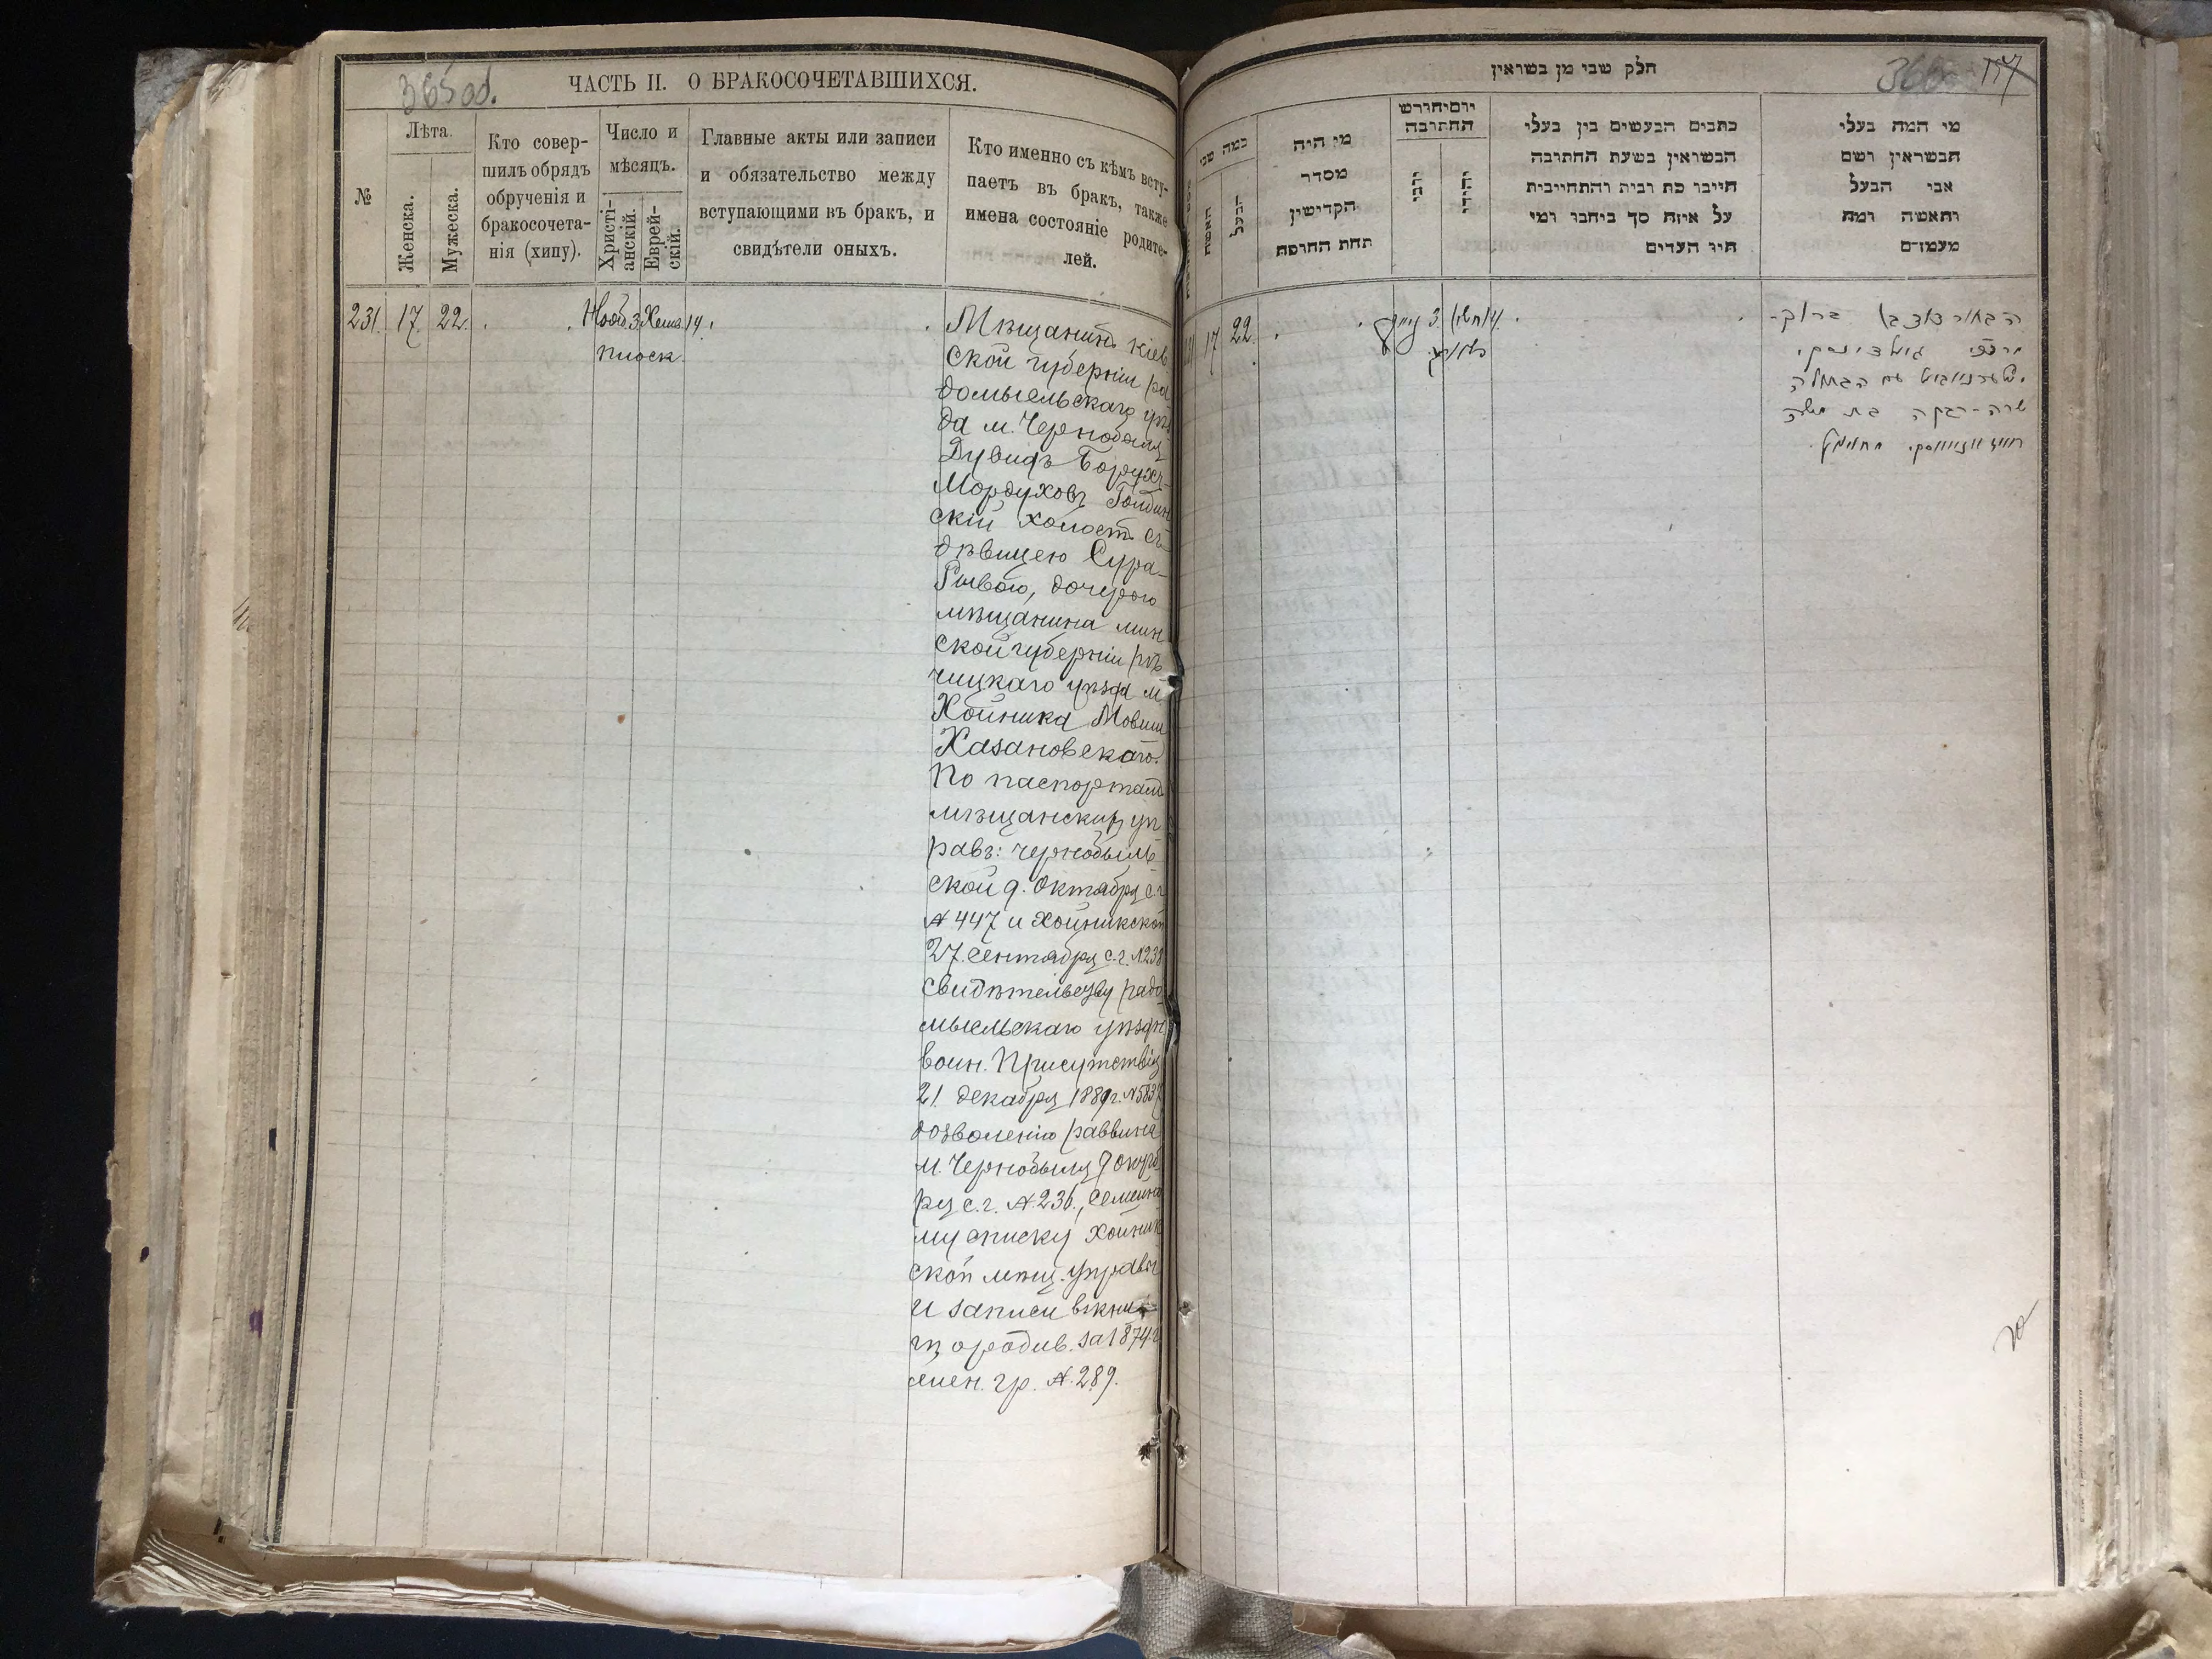 365 об.
ЧАСТЬ II. О БРАКОСОЧЕТАВШИХСЯ.
№
Лѣта.
Женска.
Мужеска.
Кто совер-
шилъ обрядъ
обрученія и
бракосочета-
нія (хипу).
Число и
мѣсяцъ.
Христі-
анскій.
Еврей-
скій.
Главные акты или записи
и обязательство между
вступающими въ бракъ, и
свидѣтели оныхъ.
Кто именно съ кѣмъ всту-
паетъ въ бракъ, также
имена состояніе родите-
лей.
231. 17. 22. Нояб. 3. Хешв. 14.
Мѣщанинъ кіев
ской губерніи ра
домысльскаго уѣз
да м. Чернобыля
Дувидъ Борухъ-
Мордуховъ Голдин
скій холост съ
дѣвицею Сура-
Рывою, дочерью
мѣщанина мин
ской губерніи рѣ
чицкаго уѣзда м.
Хойника Мовши
Хазановскаго.
По паспортамъ
мѣщанских уп
равъ: чернобыль
ской 9. Октября с.г.
№ 447 и Хойникской
27. Сентября с.г. № 238
свидѣтельству радо
мысльскаго уѣздн
воин. Присутствія
21. декабря 1889 г. № 5837
дозволенію раввина
м. Чернобыля 9 октяб
ря с.г. № 236, семейно
му списку Хойник
ской мѣщ. управы
и записи в кни
гѣ о родив. за 1874 г.
жен. гр. № 289.
חלק שני מן נשואין
366
157
כמה שני
האשה
הבעל
מי היה
מסדר
הקדישין
תחת החופה
יום וחודש
החתונה
נוצרי
יהודי
כתבים הנעשים בין בעלי
הנשואין בשעת החתונה
חייבו כת וביח והתחייבית
על איזה סך ביחבו ומי
היו העדים
מי המה בעלי
הנשואין ושם
אבי הבעל
והאשה ומה
מעמדם
17 22. 3. 14.
שרה-רבקה בת משה
20